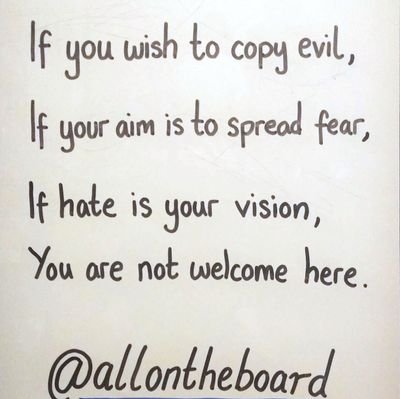 If you wish to copy evil,
If your aim is to spread fear,
If hate is your vision,
You are not welcome here.
@allontheboard